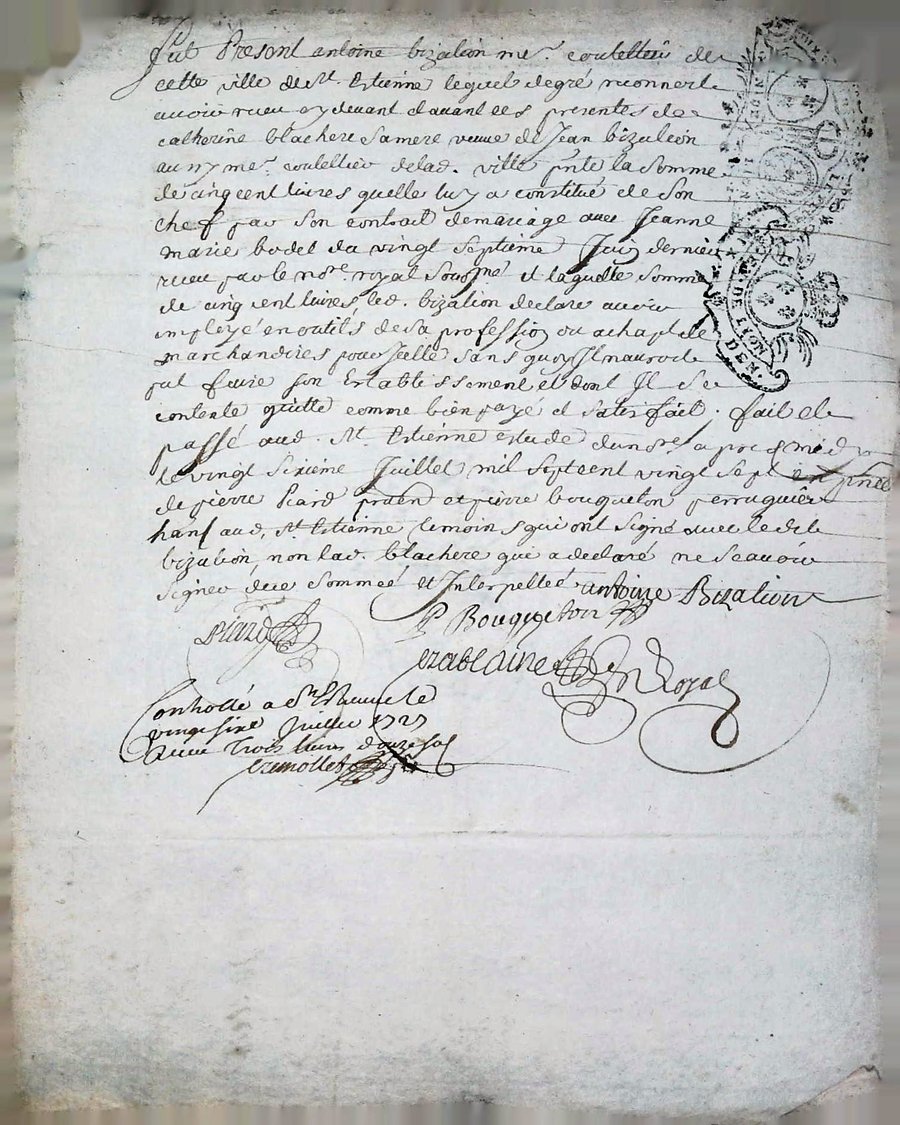 fut Present antoine bizalion me. coutellier de
cette ville de St. Estienne lequel de gré reconnert
avoir receu cy devant davant ces presentes de
catherine blachere sa mere veuve de Jean bizaleon
me. coutellier delad. ville pnte la somme
de cinq cent livres quelle luy a constitué de son
chef par son contrait de mariage avec Jeanne
marie bodet du vingt septieme Juin dernier
receu par le nore. royal sousigné et laquelle somme
de cinq cent livres led. bizalion declare avoir
employé en outils de sa profession ou achapt de
marchandises pour Icelle sans quoy Il nauroit
put faire son Establissement et dont Il se
contente quitte comme bien payé et satisfait. fait et
passé aud. St. Estienne estude dunore. apres midy
le vingt sixieme Juillet mil sept cent vingt sept en pnce
de pierre Piard praen et pierre bouqueton perruquier
hant aud. St. Estienne temoins qui ont signé avec le dit
bizalion, non lad. blachere qui a declaré ne scavoir
signer de ce sommeé et Interpelleé antoine Bizalion
piard P Bouqueton
Royal
Controllé a St Estienne le
vingt six Juillet 1727
Receu trois livres douze sol
DE LION
GEN. DE